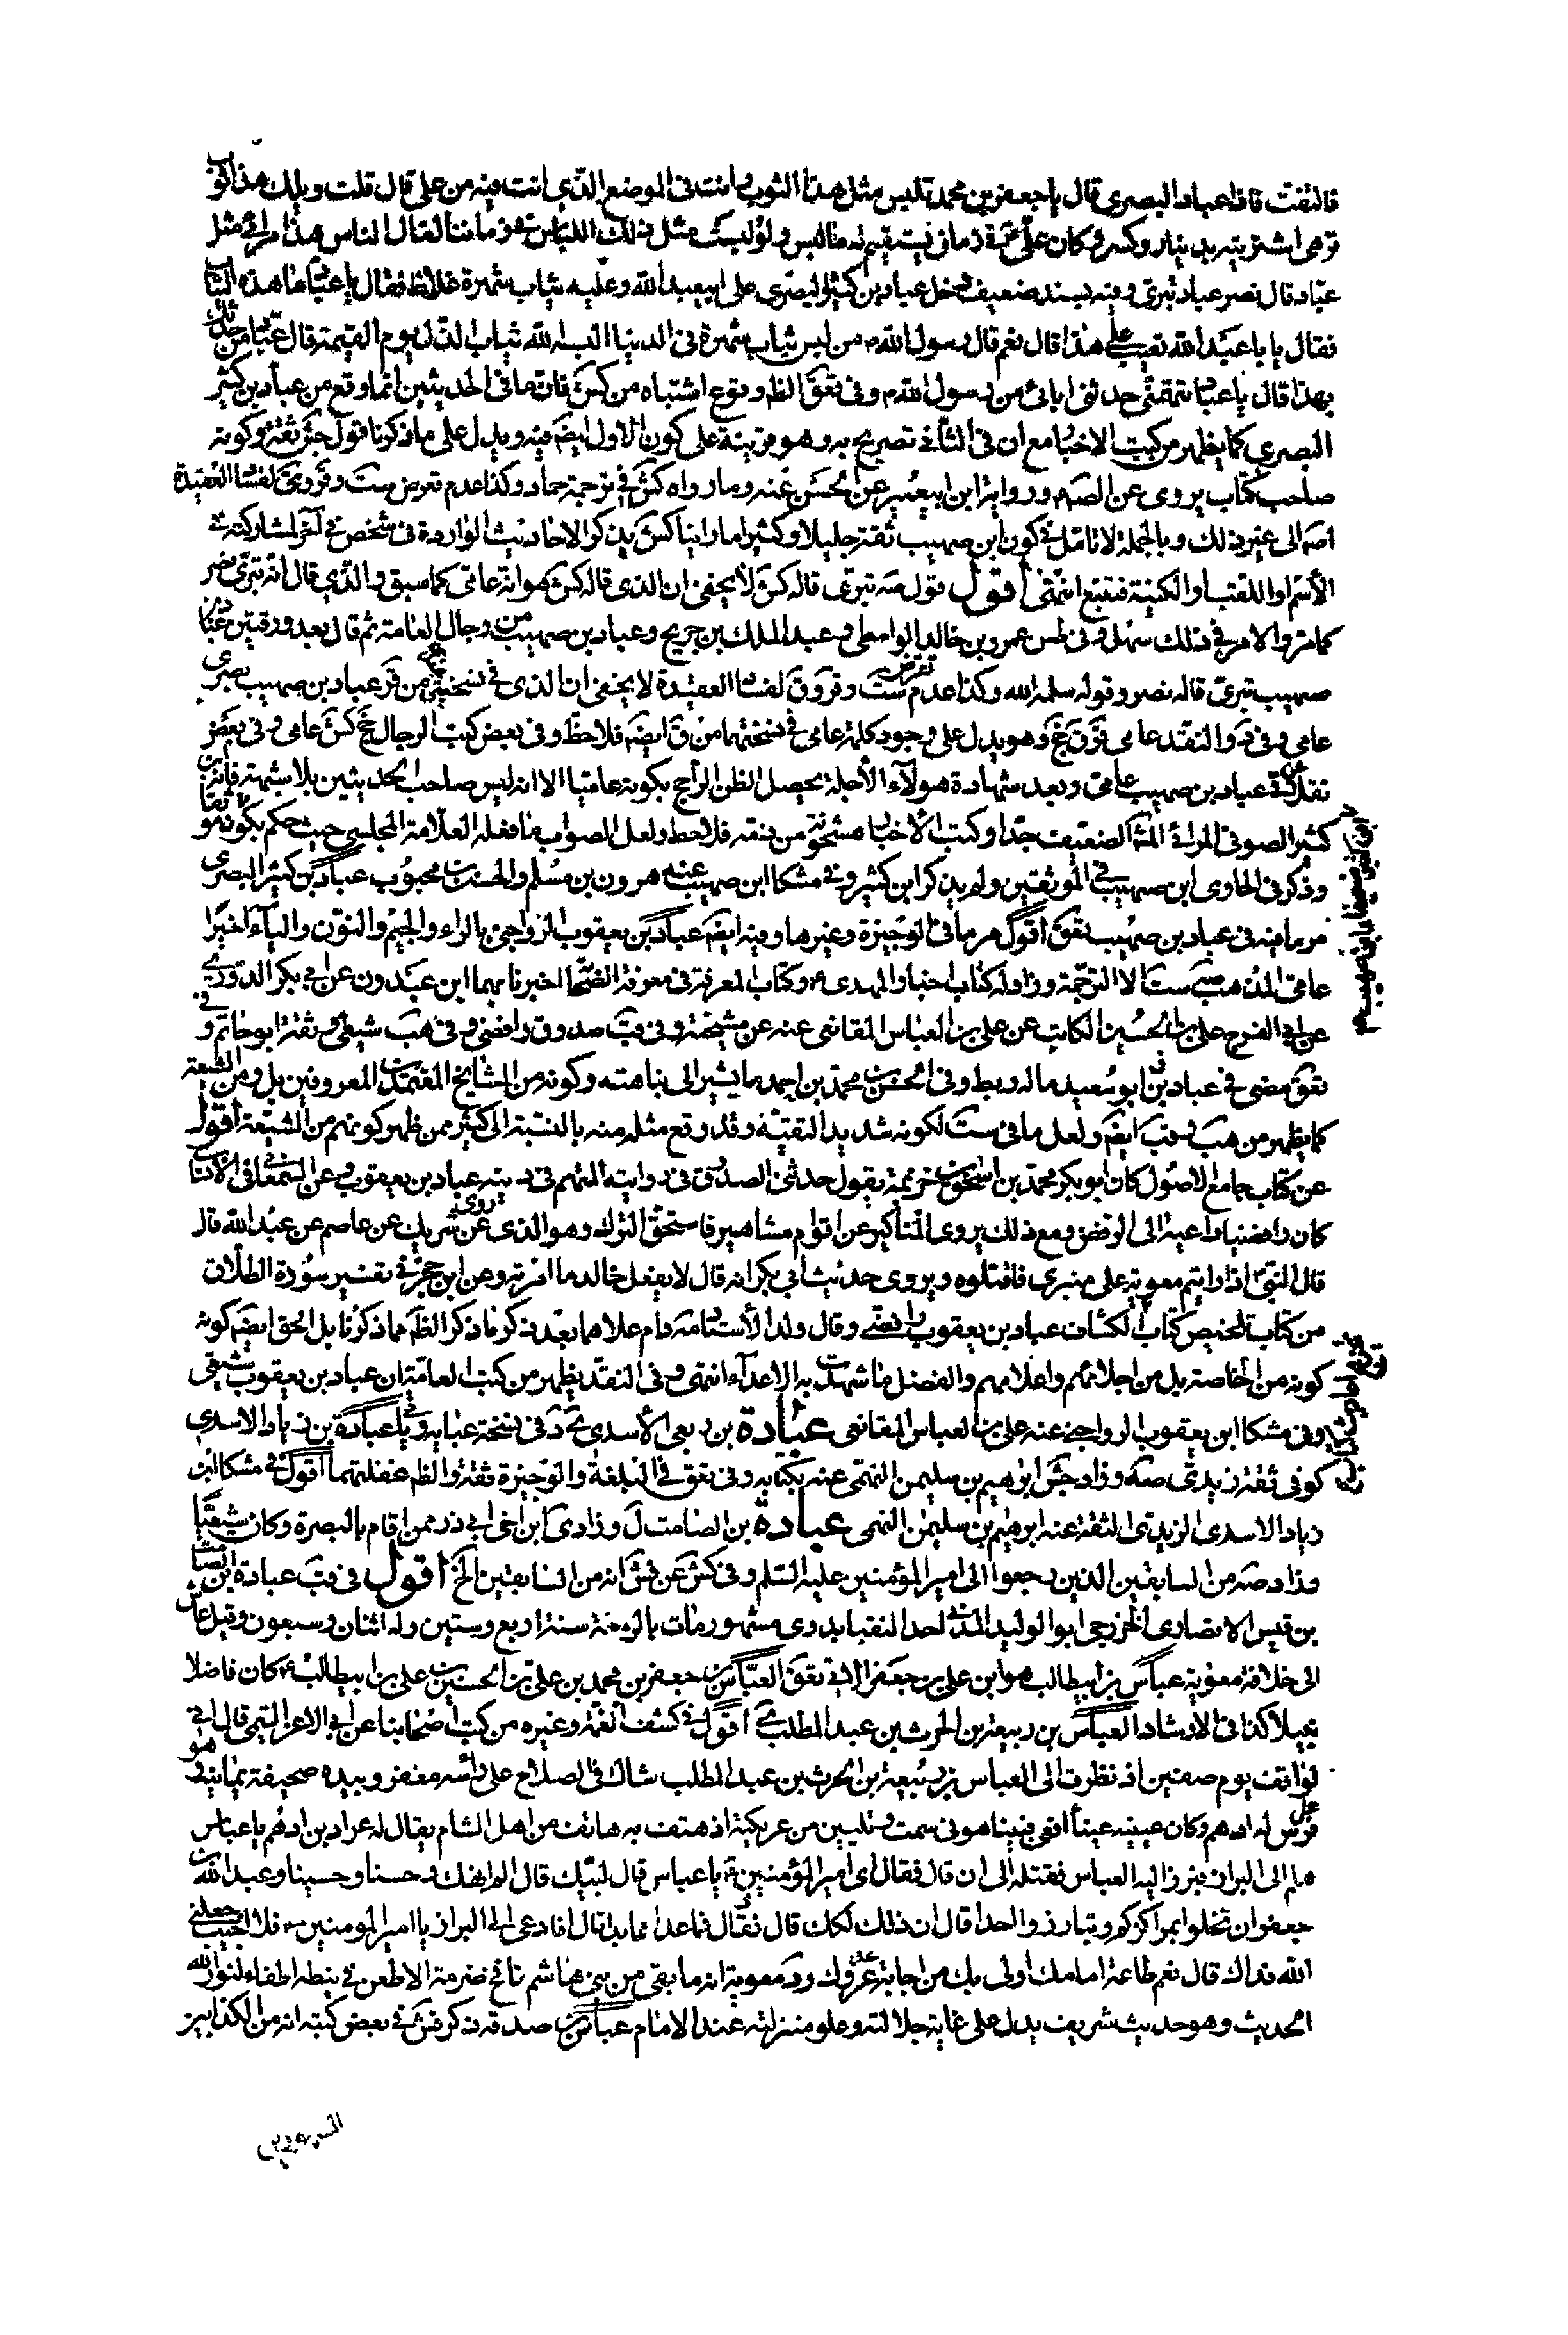 فالتفت فاذا عباد البصرى قال يا جعفر بن محمد تلبس مثل هذا الثوب وانت فى الموضع الذى انت فيه من على قال قلت ويلك هذا ثوب
قوهى اشتريته بدينار وكسر وكان على ع فى زمان يستقيم له ما لبس ولو لبست مثل ذلك اللباس فى زماننا لقال الناس هذا مراء مثل
عباد قال نصر عباد تبرى وفيه بسند ضعيف دخل عباد بن كثير البصرى على ابيعبد الله وعليه ثياب شهرة غلاظ فقال يا عباد ما هذه الثياب
فقال يا با عبد الله تعيب على هذا قال نعم قال رسول الله ص من لبس ثياب شهرة فى الدنيا البسه الله ثياب الذل يوم القيمة قال عباد من حدثك
بهذا قال يا عباد تتهمنى حدثنى ابائى عن رسول الله ص وفى تعق الظ وقوع اشتباه من كش فان ما فى الحديثين انما وقع من عباد بن كثير
البصرى كما يظهر من كتب الاخبار مع ان فى الثانى تصريح به وهو قرينة على كون الاول ايض فيه ويدل على ما ذكرنا قول جش ثقة وكونه
صاحب كتاب يروى عن الص ع ورواية ابن ابيعمير عن الحسن عنه وما رواه كش فى ترجمة حماد وكذا عدم تعرض ست وق وى لفساد العقيدة
اصلا الى غير ذلك وبالجملة لا تامل فى كون ابن صهيب ثقة جليلا وكثيرا ما راينا كش يذكر الاحاديث الواردة فى شخص فى آخر لمشاركته فى
الأسم او اللقب او الكنية فتتبع انتهى اقول قول صه تبرى قاله كش لا يخفى ان الذى قاله كش هو انه عامى كما سبق والذى قال انه تبرى نصر
كما مر والامر فى ذلك سهل وفى طس عمرو بن خالد الواسطى وعبد الملك بن جريح وعباد بن صهيب من رجال العامة ثم قال بعد ورقتين عباد بن
صهيب تبرى قاله نصر وقوله سلمه الله وكذا عدم تعرض ست وق وى لفساد العقيدة لا يخفى ان الذى فى نسختى من ق عباد بن صهيب بصرى
عامى وفى د والنقد عامى ق ق جخ وهو يدل على وجود كلمة عامى فى نسختهما من ق ايض فلاحظ وفى بعض كتب الرجال جخ كش عامى وفى بعض
نقلا عن ق عباد بن صهيب عامى وبعد شهادة هولاء الأجلة يحصل الظن الراجح بكونه عاميا الا انه ليس صاحب الحديثين بلا شبهة فانه ابن
كثير الصوفى المرائى الضعيف جدا وكتب الأخبار مشحونة من ذمه فلاحظ ولعل الصواب ما فعله العلامة المجلسى حيث حكم بكونه موثقا
وذكر فى الحاوى ابن صهيب فى الموثقين ولم يذكر ابن كثير وفى مشكا ابن صهيب عنه هرون بن مسلم والحسن بن محبوب عباد بن كثير البصرى
مر ما فيه فى عباد بن صهيب تعق أقول مر ما فى الوجيزة وغيرها وفيه ايض عباد بن يعقوب الرواجنى بالراء والجيم والنون والياء اخيرا
عامى المذهب صه ست الا الترجمة وزاد له كتاب اخبار المهدى ع وكتاب المعرفة فى معرفة الصحابة اخبرنا بهما ابن عبدون عن ابى بكر الدورى
عن ابى الفرج على بن الحسين الكاتب عن على بن العباس المقانعى عنه عن مشيخته وفى قب صدوق رافضى وفى هب شيعى وثقه ابو حاتم وفى
تعق مضى فى عباد بن ابو سعيد ما له ربط وفى الحسن بن محمد بن احمد ما يشير الى نباهته وكونه من المشايخ المعتمدين المعروفين بل ومن الشيعة
كما يظهر من هب وقب ايض ولعل ما فى ست لكونه شديد التقية وقد وقع مثله منه بالنسبة الى كثير ممن ظهر كونهم من الشيعة أقول
عن كتاب جامع الاصول كان ابو بكر محمد بن اسحق بن خزيمة يقول حدثنى الصدوق فى روايته المتهم فى دينه عباد بن يعقوب وعن السمعانى فى الانساب
كان رافضيا داعية الى الرفض ومع ذلك يروى المناكير عن اقوام مشاهير فاستحق الترك وهو الذى روى عن شريك عن عاصم عن عبد الله قال
قال النبى ص اذا رايتم معوية على منبرى فاقتلوه ويروى حديث ابى بكر انه قال لا يفعل خالد ما امرته وعن ابن حجر فى تفسير سورة الطلاق
من كتاب تلخيص كتاب الكشاف عباد بن يعقوب رافضى وقال ولد الأستاد دام علاهما بعد ذكر ما ذكر الظ مما ذكرنا بل الحق ايض كونه
كونه من الخاصة بل من اجلائهم واعلامهم والفضل ما شهدت به الاعداء انتهى وفى النقد يظهر من كتب العامة ان عباد بن يعقوب شيعى
وفى مشكا ابن يعقوب الرواجنى عنه على بن العباس المقانعى عبادة بن ربعى الأسدى ى د فى نسخة عبايه وياتى عبادة بن زياد الاسدى
كوفى ثقة زيدى صه وزاد جش ابرهيم بن سليمن النهمى عنه بكتابه وفى تعق فى البلغة والوجيزة ثقة والظ غفلتهما أقول فى مشكا ابن
زياد الاسدى الزيدى الثقة عنه ابرهيم بن سليمن النهمى عبادة بن الصامت ل وزاد ى ابن اخى ابى ذر ممن اقام بالبصرة وكان شيعيا
وزاد صه من السابقين الذين رجعوا الى امير المؤمنين عليه السلم وفى كش عن فش انه من السابقين الخ اقول فى قب عبادة بن الصامت
بن قيس الانصارى الخزرجى ابو الوليد المدنى احد النقبا بدرى مشهور مات بالرملة سنة اربع وستين وله اثنان وسبعون وقيل عاش
الى خلافة معوية عباس بن ابيطالب هو ابن على بن جعفر الاتى تعق العباس بن جعفر بن محمد بن على بن الحسين بن على بن ابيطالب ع كان فاضلا
نبيلا كذا فى الارشاد العباس بن ربيعة بن الحرث بن عبد المطلب ى أقول فى كشف الغمة وغيره من كتب اصحابنا عن ابى الاعز التيمى قال انى
لواقف يوم صفين اذ نظرت الى العباس بن ربيعة بن الحرث بن عبد المطلب شاك فى السلاح على رأسه مغفر وبيده صحيفة يمانية وهو
على فرس له ادهم وكان عينيه عينا افعى فبينا هو فى سمت وتليين من عريكته اذ هتف به هاتف من اهل الشام يقال له عرار بن ادهم يا عباس
هلم الى البراز فبرز اليه العباس فقتله الى ان قال فقال اى امير المؤمنين ع يا عباس قال لبيك قال الم انهك وحسنا وحسينا وعبد الله بن
جعفر ان تخلوا بمراكزكم وتبارزوا احدا قال ان ذلك لكك قال فقال فما عدا مما بدا قال افادعى الى البراز يا امير المومنين ع فلا اجيب جعلنى
الله فداك قال نعم طاعة امامك اولى بك من اجابة عدوك ود معوية انه ما بقى من بنى هاشم نافخ ضرمة الا طعن فى نيطه اطفاء لنور الله
الحديث وهو حديث شريف يدل على غاية جلالته وعلو منزلته عند الامام عباس بن صدقة ذكر فش فى بعض كتبه انه من الكذابين